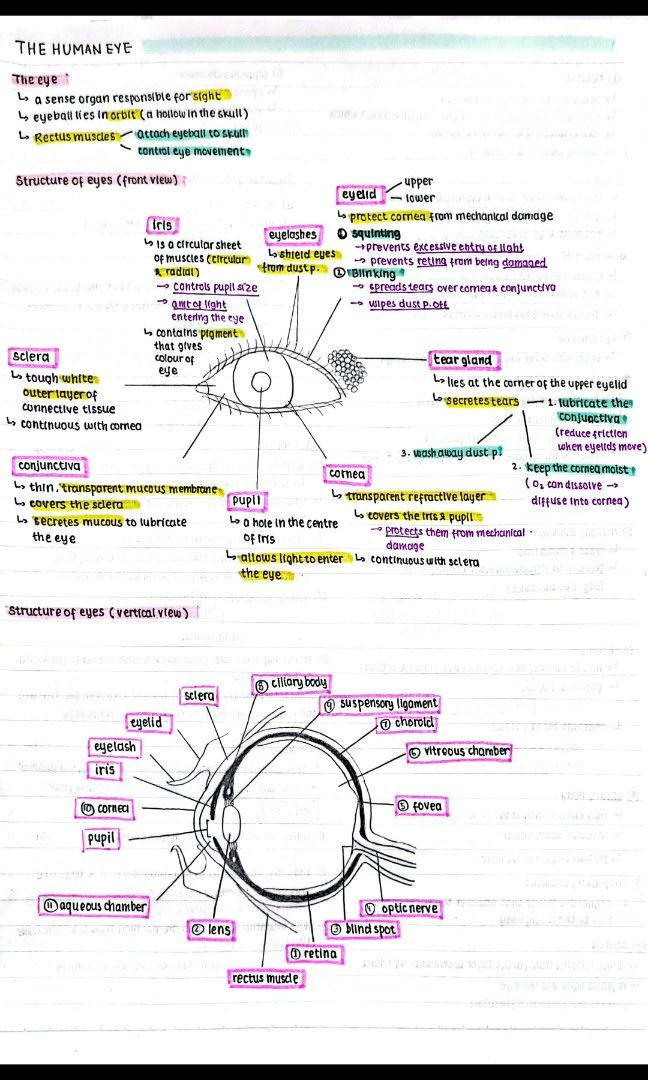 THE HUMAN EYE
The eye :
↳ a sense organ responsible for sight
↳ eyeball lies in orbit (a hollow in the skull)
↳ Rectus muscles
attach eyeball to skull
control eye movement
Structure of eyes (front view) :
eyelid
upper
lower
↳ protect cornea from mechanical damage
① squinting
→ prevents excessive entry of light
→ prevents retina from being damaged
② Blinking
→ spreads tears over cornea & conjunctiva
→ wipes dust p. off
iris
↳ is a circular sheet
of muscles (circular
& radial)
→ controls pupil size
→ amt of light
entering the eye
↳ contains pigment
that gives
colour of
eye
eyelashes
↳ shield eyes
from dust p.
sclera
↳ tough white
outer layer of
connective tissue
↳ continuous with cornea
tear gland
↳ lies at the corner of the upper eyelid
↳ secretes tears
1. lubricate the
conjunctiva
(reduce friction
when eyelids move)
3. wash away dust p.
2. keep the cornea moist
(O₂ can dissolve →
diffuse into cornea)
conjunctiva
↳ thin, transparent mucous membrane
↳ covers the sclera
↳ secretes mucous to lubricate
the eye
pupil
↳ a hole in the centre
of iris
↳ allows light to enter
the eye
cornea
↳ transparent refractive layer
↳ covers the iris & pupil
→ protects them from mechanical
damage
↳ continuous with sclera
Structure of eyes (vertical view)
sclera
⑧ ciliary body
⑨ suspensory ligament
eyelid
⑦ choroid
eyelash
⑥ vitreous chamber
iris
⑩ cornea
⑤ fovea
pupil
⑪ aqueous chamber
④ optic nerve
② lens
③ blind spot
① retina
rectus muscle